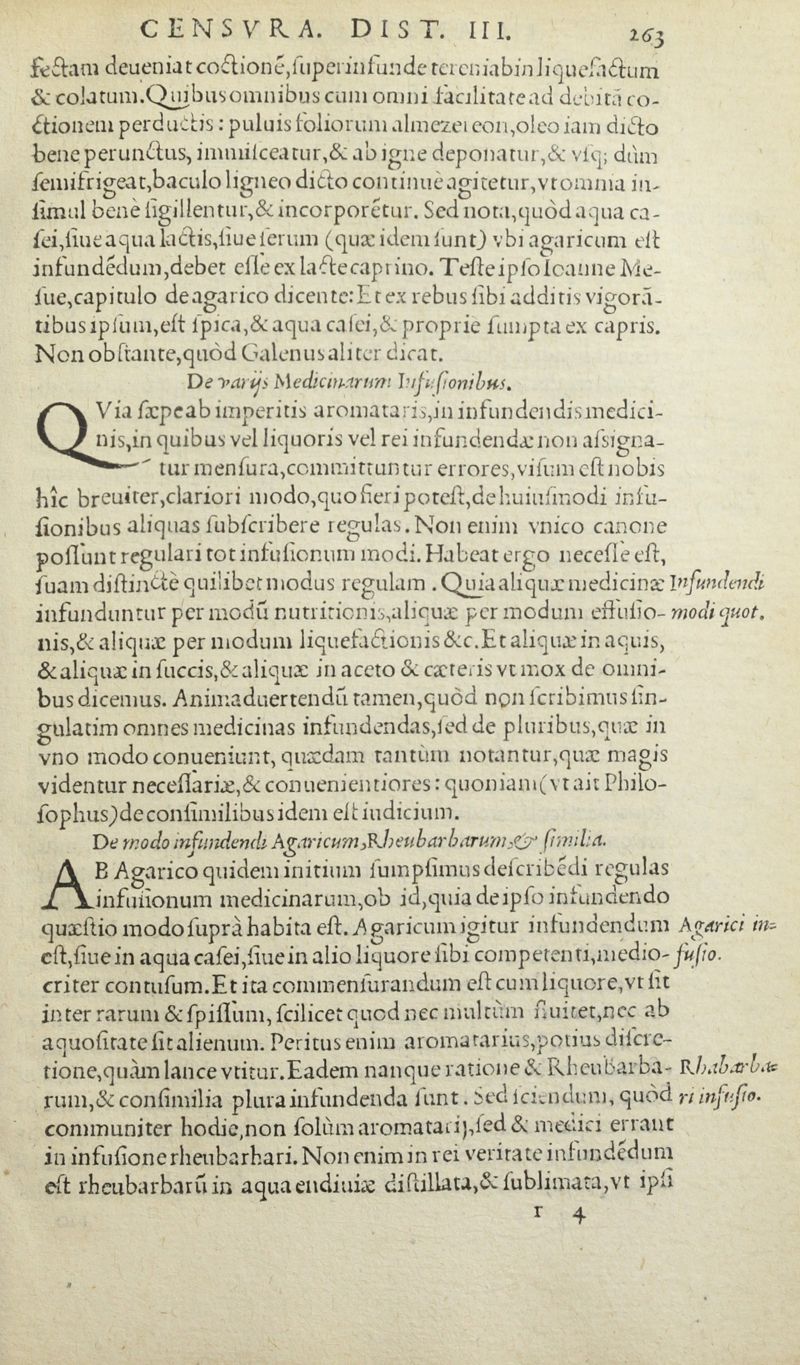 CENSVRA. DIST. III. 263
fectam deueniat coctionē,superinfunde tereniabin liquefactum
& colatum.Quibus omnibus cum omni facilitate ad debitā co-
ctionem perductis : puluis foliorum almezei eon,oleo iam dicto
bene perunctus, immisceatur,& ab igne deponatur,& vsq; dùm
semifrigeat,baculo ligneo dicto continuè agitetur,vt omnia in-
simul benè sigillentur,& incorporētur. Sed nota,quòd aqua ca-
sei,siue aqua lactis,siue serum (quæ idem sunt) vbi agaricum est
infundēdum,debet esse ex lacte caprino. Teste ipso Ioanne Me-
sue,capitulo de agarico dicente: Et ex rebus sibi additis vigorā-
tibus ipsum,est spica,& aqua casei,& propriè sumpta ex capris.
Non obstante,quòd Galenus aliter dicat.
De varijs Medicinarum Infusionibus.
QVia sæpe ab imperitis aromatarijs,in infundendis medici-
nis,in quibus vel liquoris vel rei infundendæ non assigna-
tur mensura,committuntur errores,visum est nobis
hîc breuiter,clariori modo,quo fieri potest,de huiusmodi infu-
sionibus aliquas subscribere regulas. Non enim vnico canone
possunt regulari tot infusionum modi. Habeat ergo necesse est,
suam distinctè quilibet modus regulam . Quia aliquæ medicinæ Infundendi
infunduntur per modū nutritionis,aliquæ per modum effusio- modi quot.
nis,& aliquæ per modum liquefactionis &c.Et aliquæ in aquis,
& aliquæ in succis,& aliquæ in aceto & cæteris vt mox de omni-
bus dicemus. Animaduertendū tamen,quòd non scribimus sin-
gulatim omnes medicinas infundendas,sed de pluribus,quæ in
vno modo conueniunt, quædam tantùm notantur,quæ magis
videntur necessariæ,& conuenientiores : quoniam(vt ait Philo-
sophus)de consimilibus idem est iudicium.
De modo infundendi Agaricum,Rheubarbarum,& similia.
AB Agarico quidem initium sumpsimus describēdi regulas
infusionum medicinarum,ob id,quia de ipso infundendo
quæstio modo suprà habita est. Agaricum igitur infundendum Agarici in-
est,siue in aqua casei,siue in alio liquore sibi competenti,medio- fusio.
criter contusum.Et ita commensurandum est cum liquore,vt sit
inter rarum & spissum, scilicet quod nec multùm fluitet,nec ab
aquositate sit alienum. Peritus enim aromatarius,potius discre-
tione,quàm lance vtitur.Eadem nanque ratione & Rheubarba- Rhabarba
rum,& consimilia plura infundenda sunt . Sed sciendum, quòd ri infusio.
communiter hodie,non solùm aromatarij,sed & medici errant
in infusione rheubarbari. Non enim in rei veritate infundēdum
est rheubarbarū in aqua endiuiæ distillata,& sublimata,vt ipsi
r 4